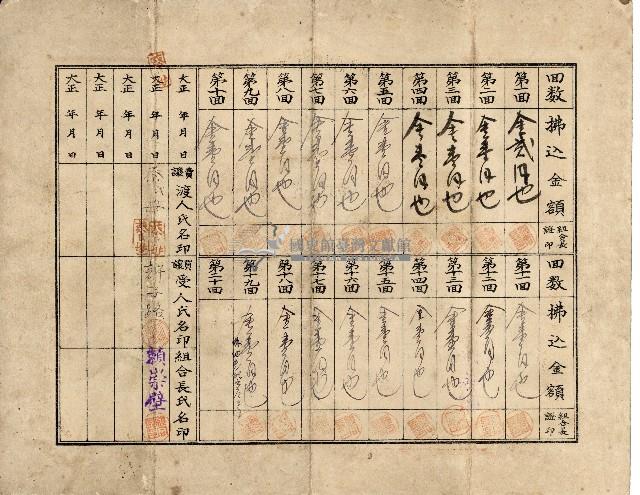 回数
拂込金額
組合長
證印
第一回
金貳円也
第二回
金壹円也
第三回
金壹円也
第四回
金壹円也
第五回
金壹円也
第六回
金壹円也
第七回
金壹円也
第八回
金壹円也
第九回
金壹円也
第十回
金壹円也
回数
拂込金額
組合長
證印
第十一回
金壹円也
第十二回
金壹円也
第十三回
金壹円也
第十四回
金壹円也
第十五回
金壹円也
第十六回
金壹円也
第十七回
金壹円也
第十八回
金壹円也
第十九回
金壹円也
第二十回
大正 年 月 日
賣讓渡人氏名印
買讓受人氏名印
組合長氏名印
大正 年 月 日
賴崇壁
大正 年 月 日
大正 年 月 日
大正 年 月 日
國史館臺灣文獻館